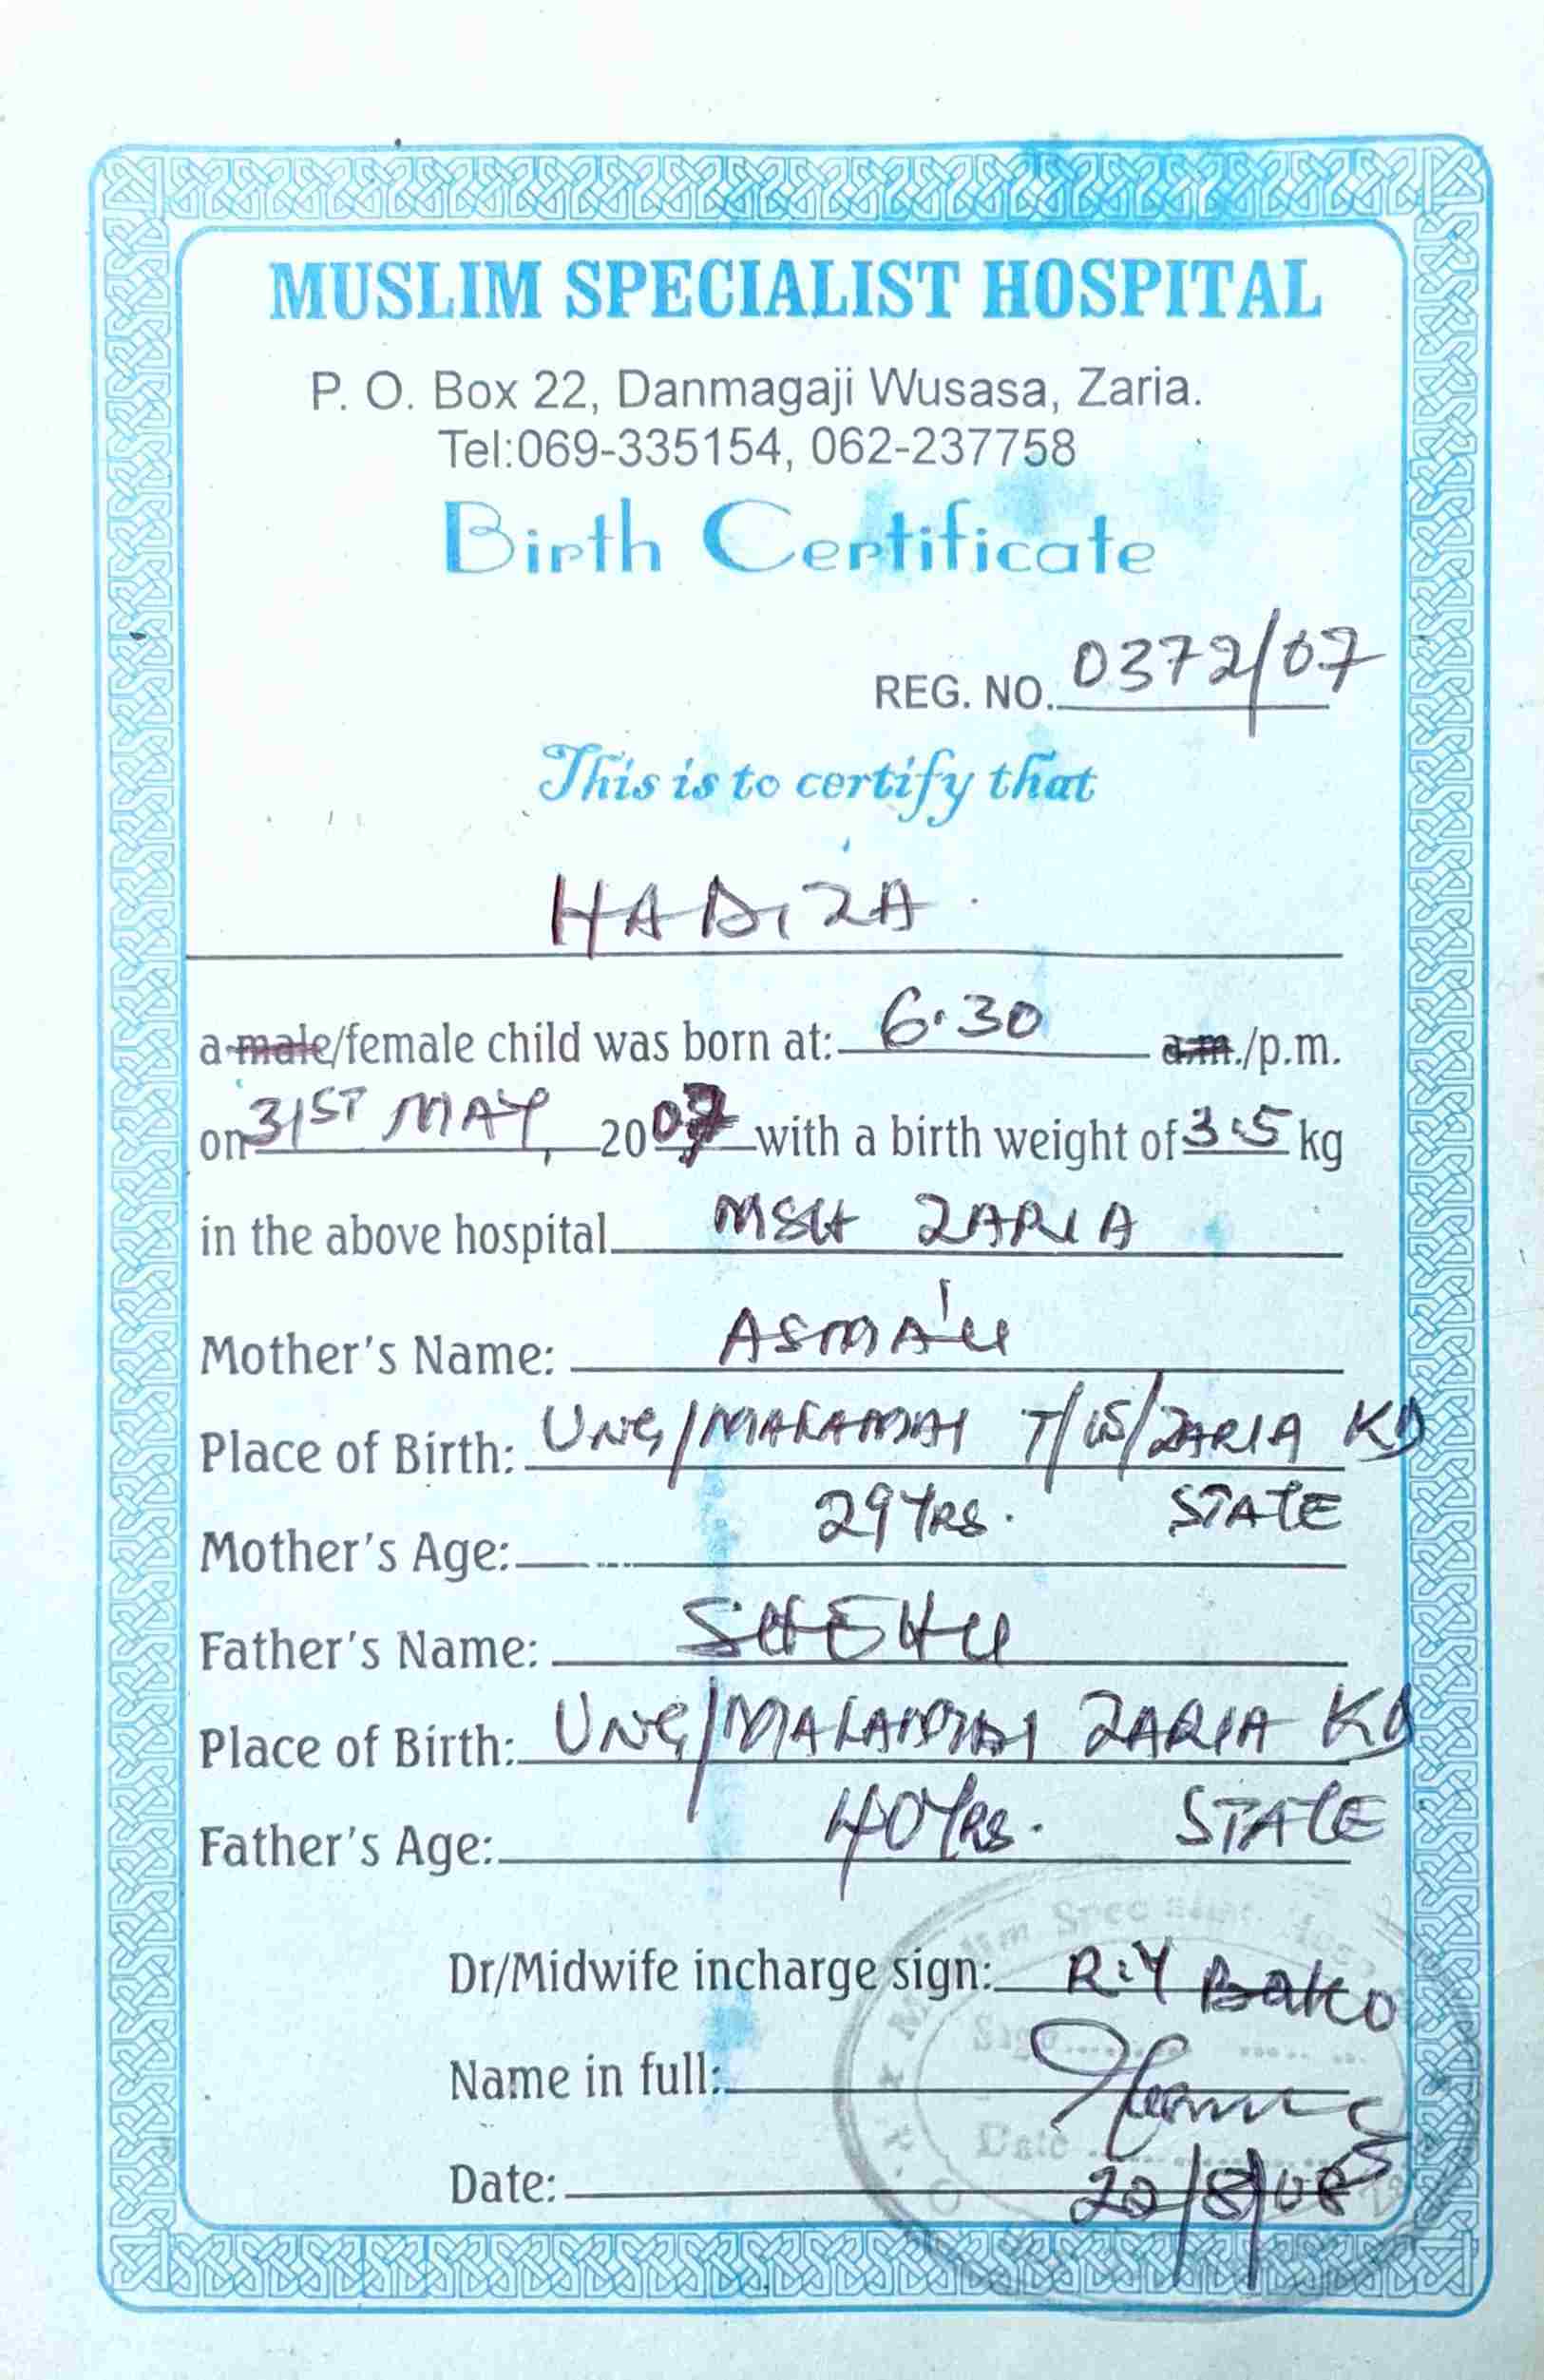 MUSLIM SPECIALIST HOSPITAL
P. O. Box 22, Danmagaji Wusasa, Zaria.
Tel:069-335154, 062-237758
Birth Certificate
REG. NO. 0372/07
This is to certify that
HADIZA
a male/female child was born at: 6.30 a.m./p.m.
on 31ST MAY, 2007 with a birth weight of 3.5 kg
in the above hospital MSH ZARIA
Mother's Name: ASMA'U
Place of Birth: UNG/MALAMAI T/W/ZARIA KD
STATE
Mother's Age: 29 YRS.
Father's Name: SHEHU
Place of Birth: UNG/MALAMAI ZARIA KD
STATE
Father's Age: 40 YRS.
Dr/Midwife incharge sign: R.Y Bako
Name in full:
Date: 20/8/08
Sign
Date